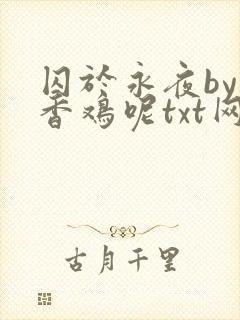 囚於永夜by
香鸡呢txt网
古月千里